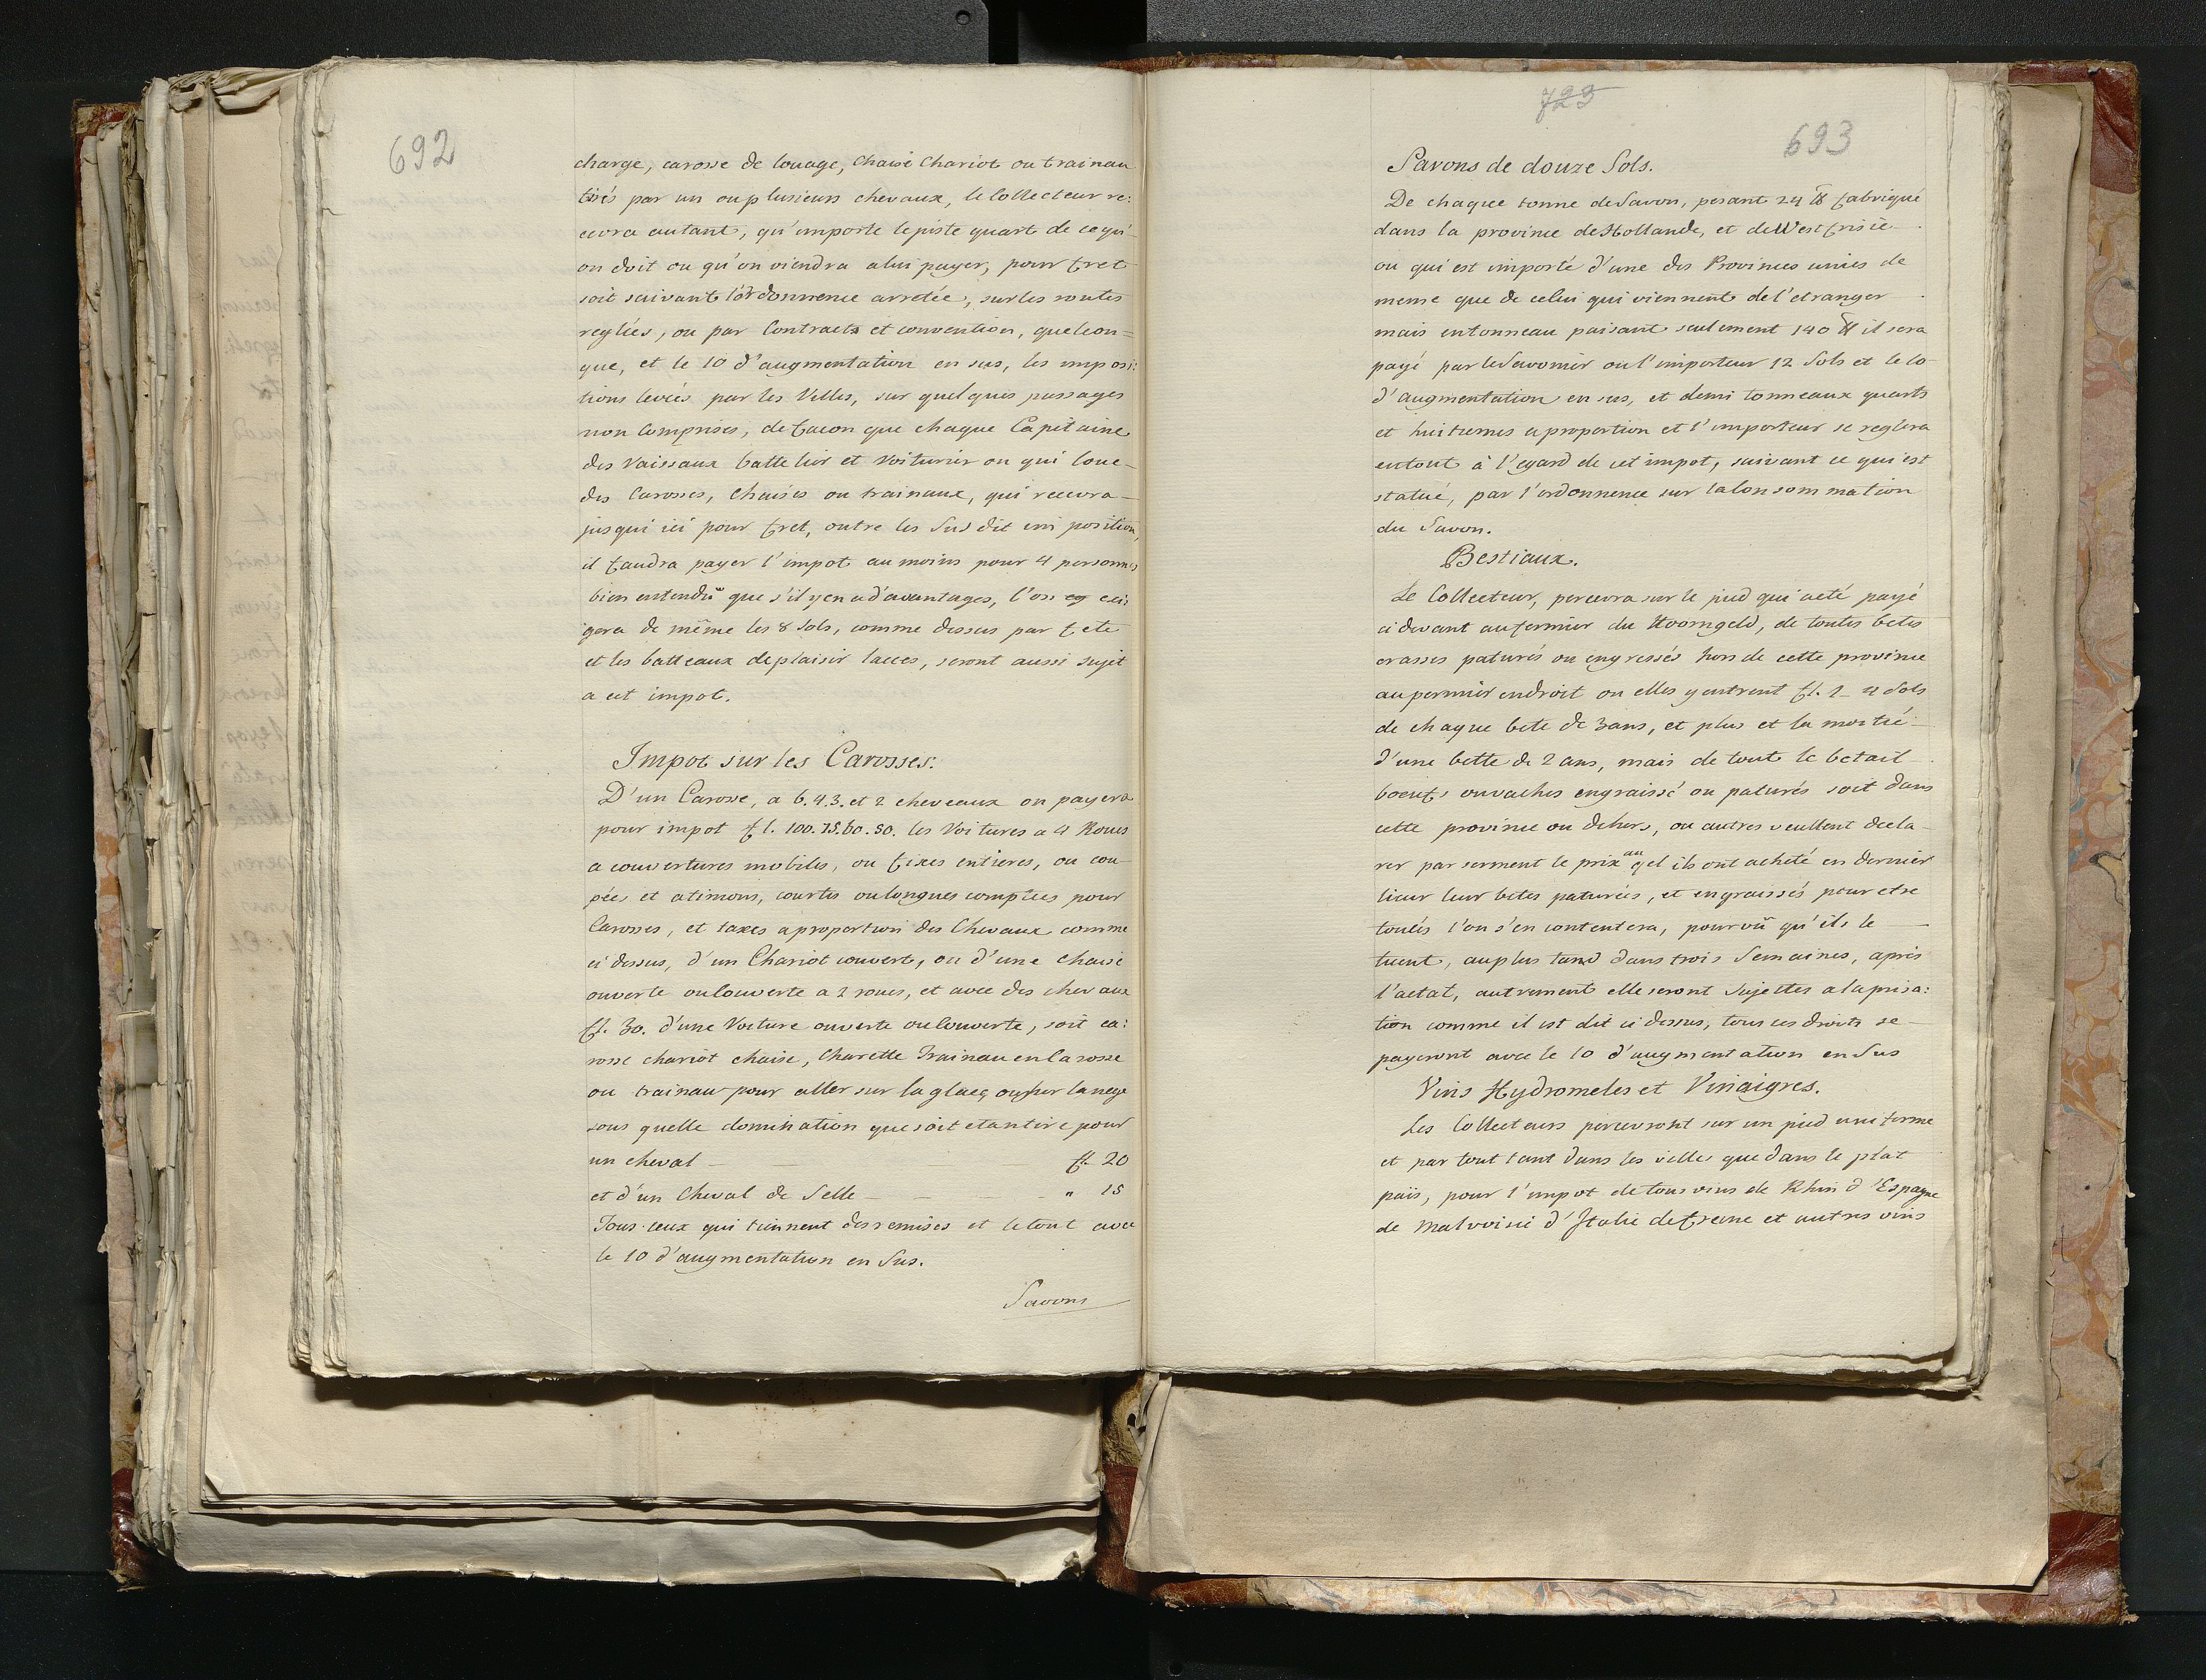 692
charge, carosse de louage, Chaise Chariot ou trainau
tirés par un ou plusieurs chevaux, le Collecteur re:
cevra autant, qu'importe lejuste quart de cequ'
on doit ou qu'on viendra alui payer, pour fret
soit suivant l'ordonnence arretée, sur les routes
regliés, ou par Contracts et convention, quelcon=
que, et le 10 d'augmentation en sus, les imposi:
tions leviés par les Villes, sur quelques passages
non Comprises, defacon que chaque Capitaine
des Vaissaux battelier et Voiturier ou qui loue
des Carosses, Chaises ou trainaux, qui recevra
jusqui ici pour fret, outre les Susdit imposition,
il faudra payer l'impot au moins pour 4 personnes
bien entendu que s'il yen a d'avantages, l'on exi
gera de même les 8 Sols, comme dessus par tete
et les batteaux deplaisir laces, seront aussi sujet
a cet impot.
Impot sur les Carosses.
D'un Carosse, a 6. 4. 3. et 2 cheveaux on payera
pour impot fl. 100. 75. 60. 50. les Voitures a 4 Roues
a couvertures mobiles, ou fixes entieres, ou cou-
pées et atimons, courtes oulongues comptees pour
Carosses, et taxes aproportion des Chevaux comme
ci dessus, d'un Chariot couvert, ou d'une chaise
ouverte oulouverte a 2 roues, et avec des chevaux
fl. 30. d'une Voiture ouverte oulouverte, soit ca:
rosse chariot chaise, Charette Traineau en Carosse
ou trainau pour aller sur la glace ou sur lanege
sous quelle domination que soit etantire pour
un cheval — fl. 20
et d'un Cheval de Selle — " 15
Tous ceux qui tiennent des remises et letout avec
le 10 d'augmentation en Sus.
Savons
723
693
Savons de douze Sols.
De chaque tonne de Savon, pesant 24 ℔ fabriqué
dans la province de Hollande, et de West frisie
ou qui est importé d'une des Provinces unies de
meme que de celui qui viennent de l'etranger
mais entonneau paisant seulement 140 ℔ il sera
payé par le Savonier ou l'importeur 12 Sols et le 10
d'augmentation en sus, et demi tonneaux quarts
et huitiemes aproportion et l'importeur se reglera
entout à l'egard de cet impot, suivant ce qui est
statué, par l'ordonnence sur la Consommation
du Savon.
Bestiaux.
Le Collecteur, percevra sur le pied qui aeté payé
ci devant aufermier du Hoorngeld, de toutes betes
crasses paturés ou engressés hors de cette province
aupermier endroit ou elles y entrent fl. 1 - 4 Sols
de chaque bete de 3 ans, et plus et la moitié
d'une bette de 2 ans, mais de tout le betail
boeufs ouvaches engraissé ou paturés soit dans
cette province ou dehors, ou autres veullent decla-
rer par serment le prix auqel ils ont acheté en dernier
lieur leur betes paturées, et engraissés pour etre
toulés l'on s'en contentera, pourvû qu'ils le
tuent, auplus tard dans trois Semaines, apres
l'actat, autrement elle seront Sujettes alaprisa:
tion comme il est dit ci dessus, tous ces droits se
payeront avec le 10 d'augmentation en Sus
Vins Hydromeles et Vinaigres.
Les Collecteurs percevront sur un pied uniforme
et par tout tant dans les villes que dans le plat
païs, pour l'impot de tous vins de Rhin d'Espagne
de Malvoisie d'Italie de Grece et autres vins